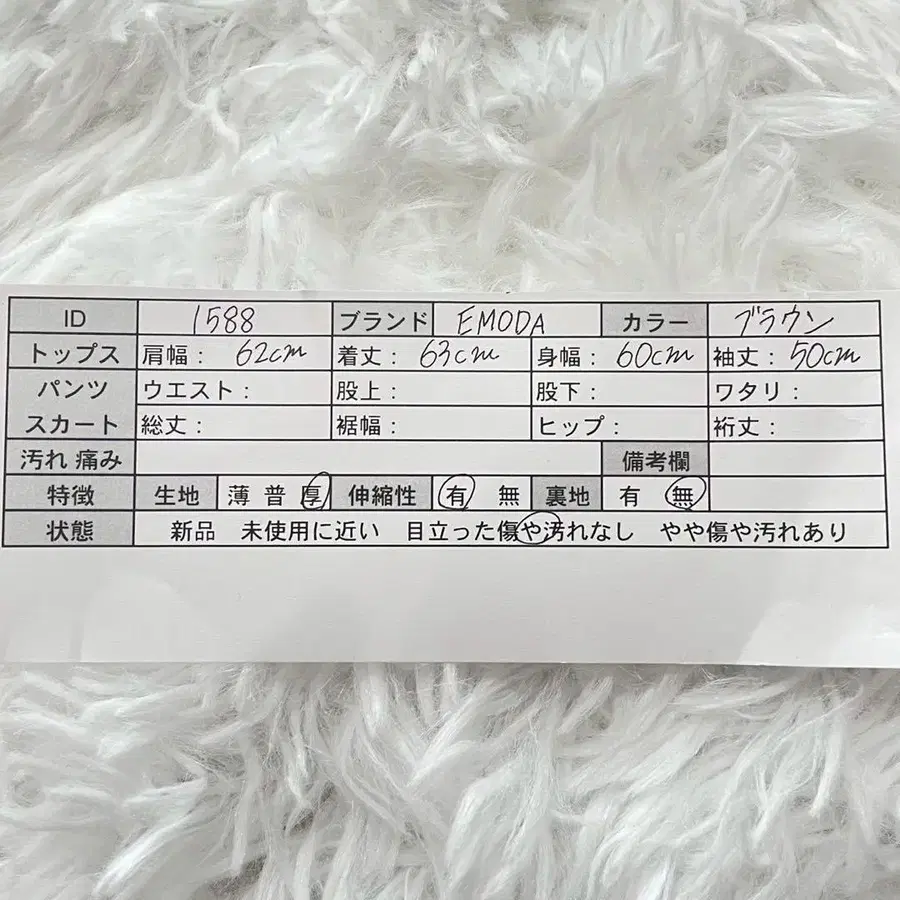 ID 1588 ブランド EMODA カラー ブラウン
トップス 肩幅： 62cm 着丈： 63cm 身幅： 60cm 袖丈： 50cm
パンツ ウエスト： 股上： 股下： ワタリ：
スカート 総丈： 裾幅： ヒップ： 裄丈：
汚れ 痛み 備考欄
特徴 生地 薄 普 厚 伸縮性 有 無 裏地 有 無
状態 新品 未使用に近い 目立った傷や汚れなし やや傷や汚れあり